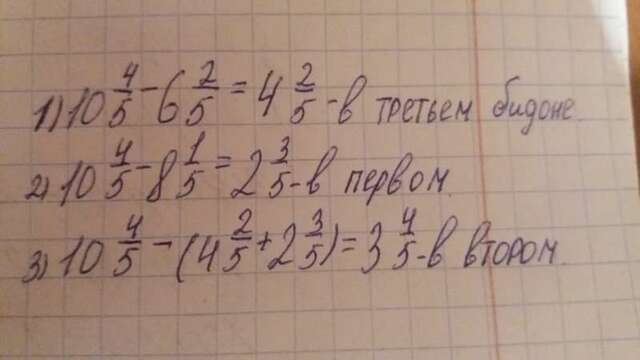 1) 10 4/5 - 6 2/5 = 4 2/5 - в третьем бидоне
2) 10 4/5 - 8 1/5 = 2 3/5 - в первом
3) 10 4/5 - (4 2/5 + 2 3/5) = 3 4/5 - в втором